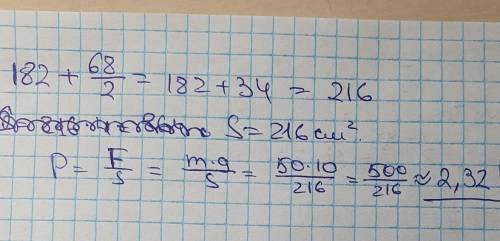 182 + 68/2 = 182 + 34 = 216
S = 216 см².
P = F/S = m·g/S = 50·10/216 = 500/216 ≈ 2,32